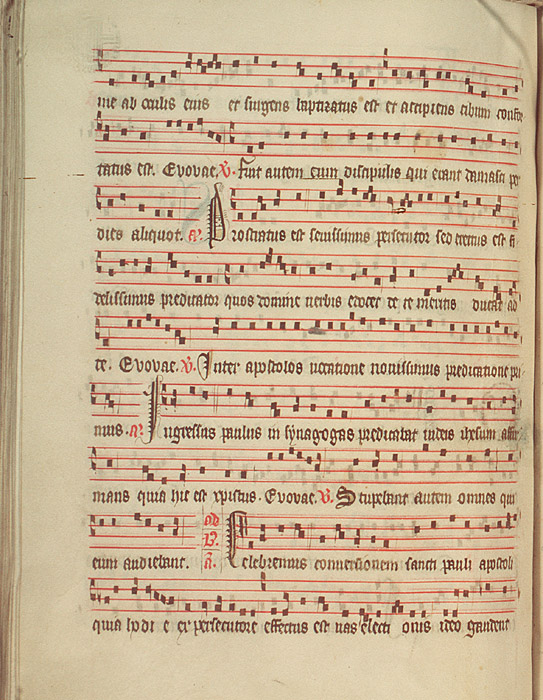 me ab oculis eius et surgens baptizatus est et accipiens cibum confor
tatus est. Evovae. V. Fuit autem cum discipulis qui erant damasci per
dies aliquot. a. Prostratus est sevissimus persecutor sed erectus est fi
delissimus predicator quos domine verbis edocet de te meritis ducat ad
te. Evovae. V. Inter apostolos vocatione novissimus predicatione pri
mus. a. Ingressus paulus in synagogas predicabat iudeis ihesum affir
mans quia hic est xpistus. Evovae. V. Stupebant autem omnes qui
eum audiebant. ad B. a. Celebremus conversionem sancti pauli apostoli
quia hodi e ex persecutore effectus est vas electi onis ideo gaudent